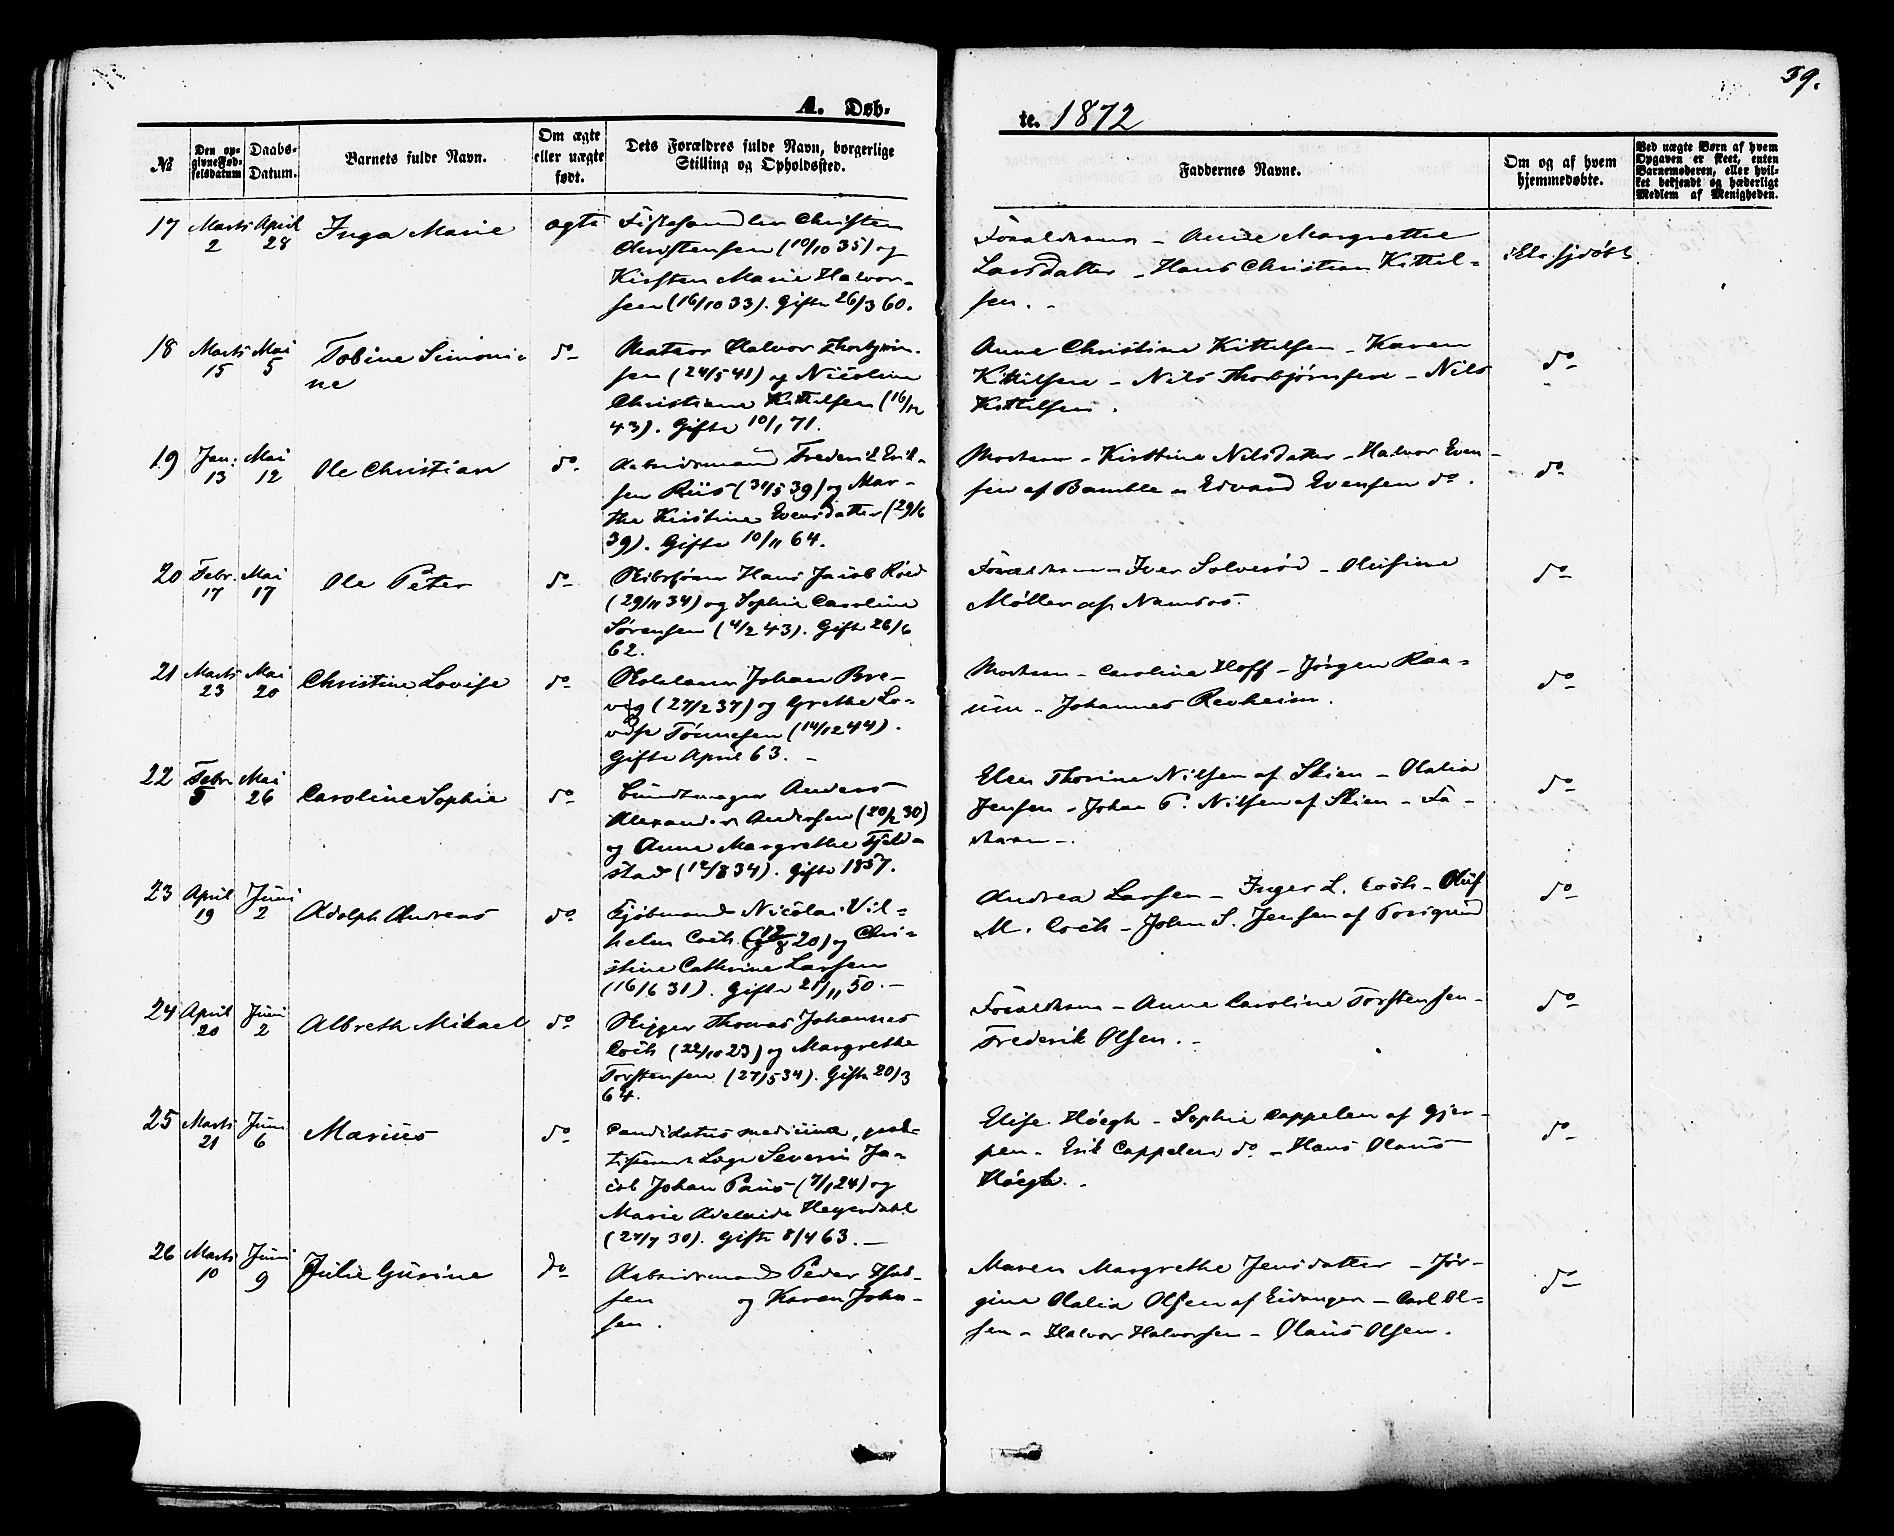 A. Døb-
№
Den op-
givne Fød-
selsdatum
Daabs-
Datum.
Barnets fulde Navn.
Om ægte
eller uægte
født.
Dets Forældres fulde Navn, borgerlige
Stilling og Opholdssted.
17 Marts 2 April 28 Inga Marie ægte
Christen
Christensen (10/10 35) og
Kirsten Marie Halvor-
sen (16/10 33). Gifte 26/3 60.
18 Marts 15 Mai 5 Tobine Simoni-
ne do
Matros Halvor Thorbjørn-
sen (24/5 41) og Nicoline
Christiane Kittelsen (16/12
43). Gifte 10/1 71.
19 Jan: 13 Mai 12 Ole Christian do
Arbeidsmand Frederik Erik-
sen Riis (31/5 39) og Mar-
the Kirstine Evensdatter (29/6
39). Gifte 10/11 64.
20 Febr. 17 Mai 17 Ole Peter do
Skibsfører Hans Jacob Røed
(29/11 34) og Sophie Caroline
Sørensen (4/2 43). Gifte 26/6
62.
21 Marts 23 Mai 20 Christine Lovise do
Skolelærer Johan Bre-
vig (27/2 37) og Grethe Lo-
vise Tønnesen (14/12 44).
Gifte April 63. -
22 Febr 5 Mai 26 Caroline Sophie do
Bundtmager Anders
Alexander Andersen (20/2 30)
og Anne Margrethe Fjeld-
stad (12/8 34). Gifte 1857.
23 April 19 Juni 2 Adolph Andreas do
Kjøbmand Nicolai Vil-
helm Coch 20) og Chri-
stine Cathrine Larsen
(16/6 31). Gifte 21/11 50. -
24 April 20 Juni 2 Albreth Mikael do
Skipper Thomas Johannes
Coch (22/10 23) og Margrethe
Torstensen (27/5 34). Gifte 20/3
64.
25 Marts 21 Juni 6 Marius do
Candidatus medicinæ, prak-
tiserende Læge Severin Ja-
cob Johan Paus (7/1 24) og
Marie Adelaide Heyerdahl
(27/7 30). Gifte 8/4 63. -
26 Marts 10 Juni 9 Julie Gusine do
Arbeidsmand Peder
sen og Karen John-
sen.
te. 1872
39.
Faddernes Navne.
Om og af hvem
hjemmedøbte.
Ved uægte Børn af hvem
Opgaven er skeet, enten
Barnemoderen, eller hvil-
ket bekjendt og hæderligt
Medlem af Menigheden.
Forældrene - Anne Margrethe
Larsdatter - Hans Christian Kittel-
sen. -
ikke hjdøbt.
Anne Christine Kittelsen - Karen
Kittilsen - Nils Thorbjørnsen - Nils
Kittelsen.
do
Moderen - Kirstine Nilsdatter - Halvor Even-
sen af Bamble - Edvard Evensen do.
do
Forældrene - Iver Solverød - Olufine
Møller af Namsos.
do
Moderen - Caroline Hoff - Jørgen Raa-
um - Johannes Revheim.
do
Elen Thorine Nilsen af Skien - Olalia
Jensen - Johan P. Nilsen af Skien - Fa-
deren -.
do
Andrea Larsen - Inger L. Coch - Oluf
M. Coch - John S. Jensen af Porsgrund
do
Forældrene - Anne Caroline Torstensen -
Frederik Olsen. -
do
Elise Høegh - Sophie Cappelen af Gjer-
pen - Erik Cappelen do - Hans Olaus
Høegh. -
do
Maren Margrethe Jensdatter - Jør-
gine Olalia Olsen af Eidanger - Carl Ol-
sen - Halvor Halvorsen - Olaus Olsen.
do